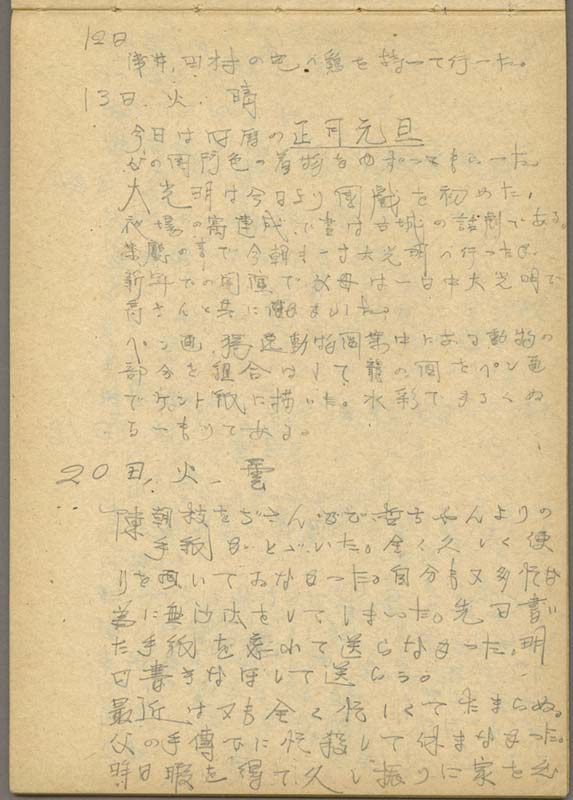 12日
津井,田村の宅へ鶏を持って行った。
13日.火.晴
今日は旧暦の正月元旦
父の国防色の着物をゆずってもらった
大光明は今日より国戯を初めた,
で昔は古城の話劇である。
の事で今朝も一寸大光明へ行った
新年での開演で父母は一日中大光明で
さんと共に
ペン画,動物図案中にある動物の
部分を組合はして龍の図をペン画
でケント紙に描いた。水彩でまるくぬ
るつもりである。
20日,火.曇
陳朝枝をぢさん 哲ちやんよりの
手紙がとどいた。全く久しく便
りを画いておなかった。自分も又多忙の
為に無沙汰をしてしまいた。先日書い
た手紙を忘れて送らなかった,明
日書きなほして送らう。
最近は又も全く忙しくてたまらぬ。
父の手傳ひに忙殺して休まなかった。
時日暇を得て久し振りに家を